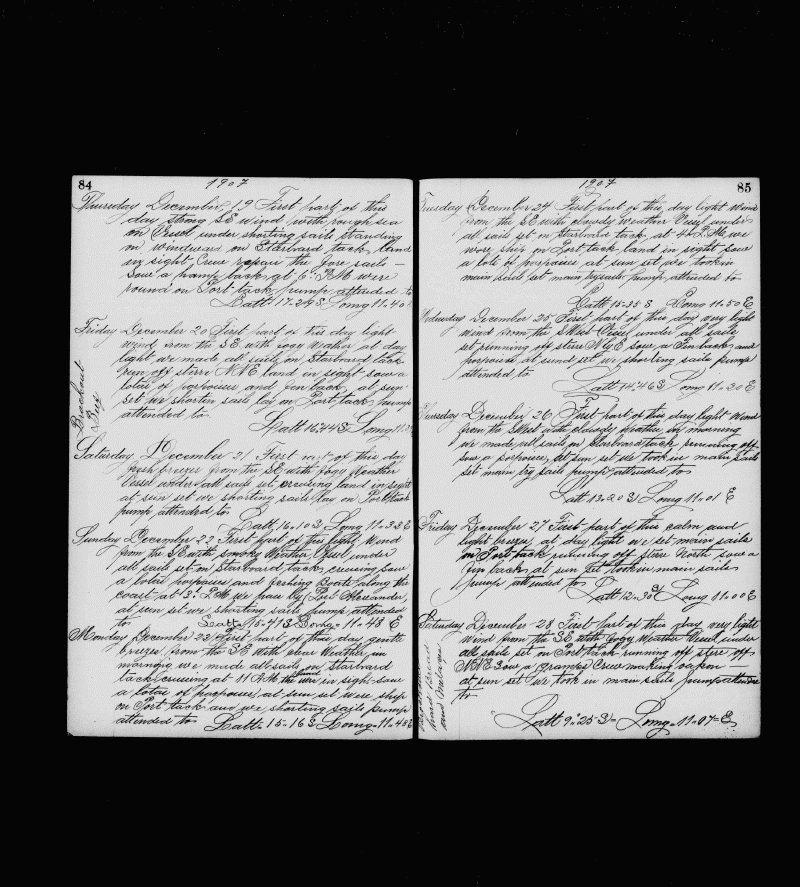 84
1907
Thursday December 19 First part of this
day strong SE wind with rough sea
on Vessel under shorting sails standing
in windward on Starbord tack, land
in sight Crew repair the fore sails -
Saw a hump back, at 6 P.M. were
round on Port tack pump attended to
Latt 17-29 S Long 11-40
Friday December 20 First part of this day light
wind from the SE with fogy wather at day
light we made all sails on Starbord tack
run off steere NNE, land in sight saw a
lotes of porpoises and fin back, at sun
set we shorten sails lay on Port tack pump
attended to
Latt 16-44 S Long 11
Saturday December 21 First part of this day
fresh breezes from the SE with fogy Weather
Vessel under all sails set cruising land in sight
at sun set we shorting sails lay on Port tack
pump attended to
Latt 16-10 S Long 11-33 E
Sunday December 22 First part of this light Wind
from the SE with smoky Weather Vessel under
all sails set on Starbord tack, cruising saw
a lotes porpoises and fishing Boats along the
coast at 3 P.M. we pass by Port Alexander,
at sun set we shorting sails pump attended
to Latt 15-41 S Long 11-48 E
Monday December 23 First part of this day gentle
breezes from the SE with clear Weather, in
morning we made all sails on Starbord
tack cruising at 11 A.M. the land in sight saw
a lotes of porpoises at sun set were ship
on Port tack and we shorting sails pump
attended to Latt 15-16 S Long 11-48 E
Bread
85
1907
Tuesday December 24 First part of this day light Wind
from the SE with cloudy weather Vessel under
all sails set on Starbord tack, at 4 P.M. we
wore ship on Port tack land in sight saw
a lots of porpoises at sun set we took in
main sail set main trysails pump attended to
Latt 15-35 S Long 11-50 E
Wednesday December 25 First part of this day very light
wind from the SWest Vessel under all sails
set running off steere NGE saw a Fin back, and
porpoises at sund set we shorting sails pump
attended to
Latt 14-46 S Long 11-30 E
Thursday December 26 First part of this day light Wind
from the SWest with cloudy Weather in morning
we made all sails on Starbord tack running off
saw a porpoises, at sun set we took in main sails
set main try sails pump attended to
Latt 13-20 S Long 11-01 E
Friday December 27 First part of this calm and
light breeze, at day light we set main sails
on Port tack running off steere North saw a
Fin back, at sun set took in main sails
pump attended to
Latt 12-30 S Long 11-00 E
Saturday December 28 First part of this day very light
wind from the SE with fogy Weather Vessel under
all sails set on Port tack running off steere off
NNE saw a grampus Crew making
at sun set we took in main sails pump attended
to
Latt 9-25 S Long 11-07 E
hard Bread
and